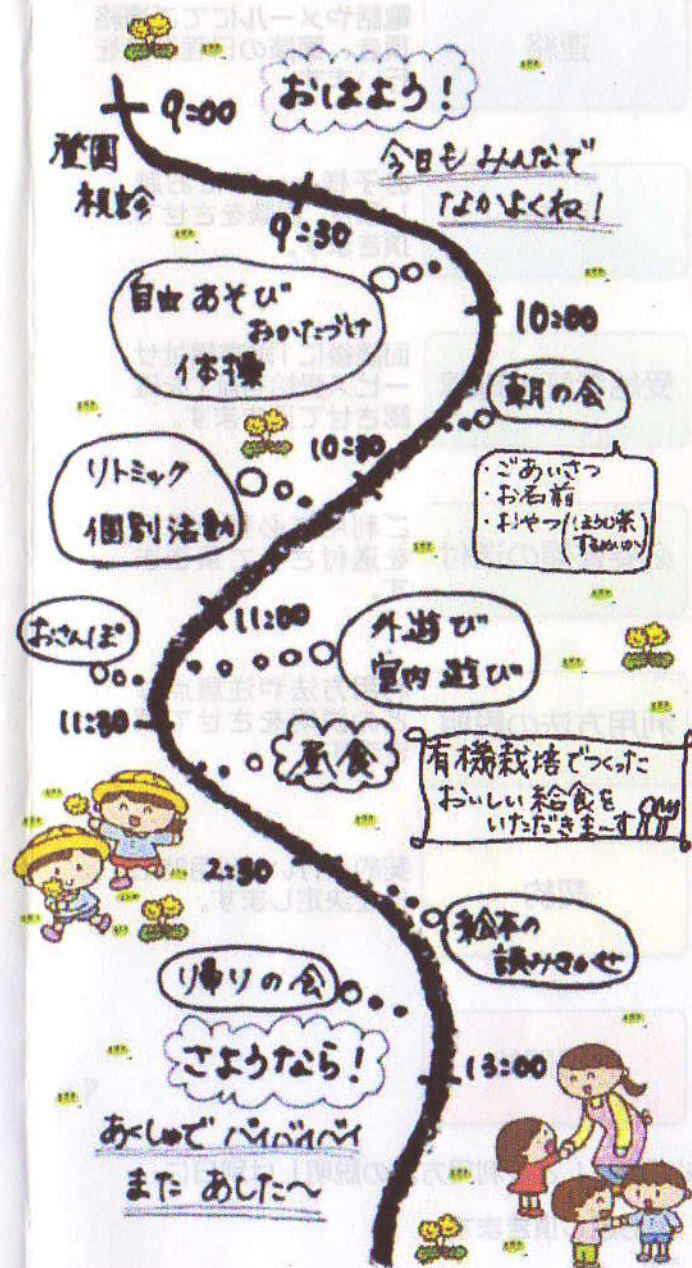 9:00
おはよう!
登園
視診
今日もみんなで
なかよくね!
9:30
自由あそび
おかたづけ
体操
10:00
朝の会
・ごあいさつ
・お名前
・おやつ(ほうじ茶
するめいか)
10:30
リトミック
個別活動
11:00
おさんぽ
外遊び
室内遊び
11:30
昼食
有機栽培でつくった
おいしい給食を
いただきま〜す
2:30
絵本の
読みきかせ
帰りの会
さようなら!
13:00
あくしゅで バイバイバイ
また あした〜